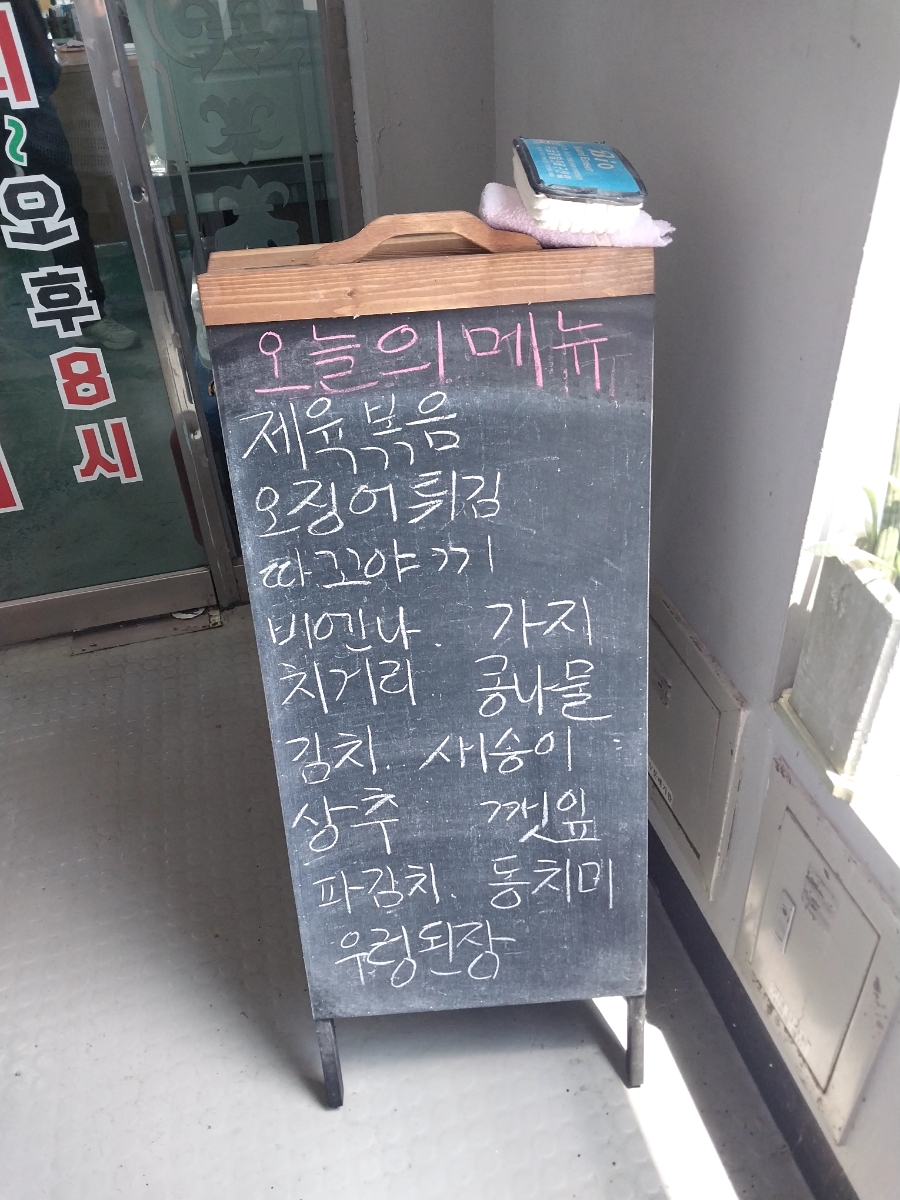 ~오후8시
오늘의 메뉴
제육볶음
오징어튀김
따꼬야끼
비엔나. 가지
치거리. 콩나물
김치. 새송이
상추 깻잎
파김치. 동치미
우렁된장